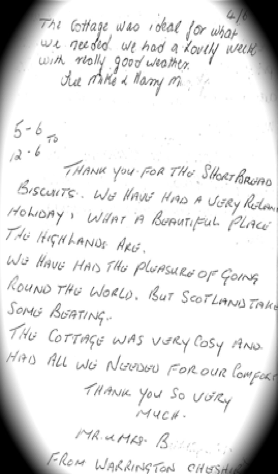 4/6
The Cottage was ideal for what
we needed we had a lovely week
with really good weather.
Mike & Harry M.
5-6 to
12-6
THANK YOU FOR THE SHORTBREAD
BISCUITS. WE HAVE HAD A VERY
HOLIDAY, WHAT A BEAUTIFUL PLACE
THE HIGHLANDS ARE.
WE HAVE HAD THE PLEASURE OF GOING
ROUND THE WORLD. BUT SCOTLAND TAKE
SOME BEATING.
THE COTTAGE WAS VERY COSY AND
HAD ALL WE NEEDED FOR OUR COMFORT
THANK YOU SO VERY
MUCH.
MR & MRS. B
FROM WARRINGTON CHESHIRE